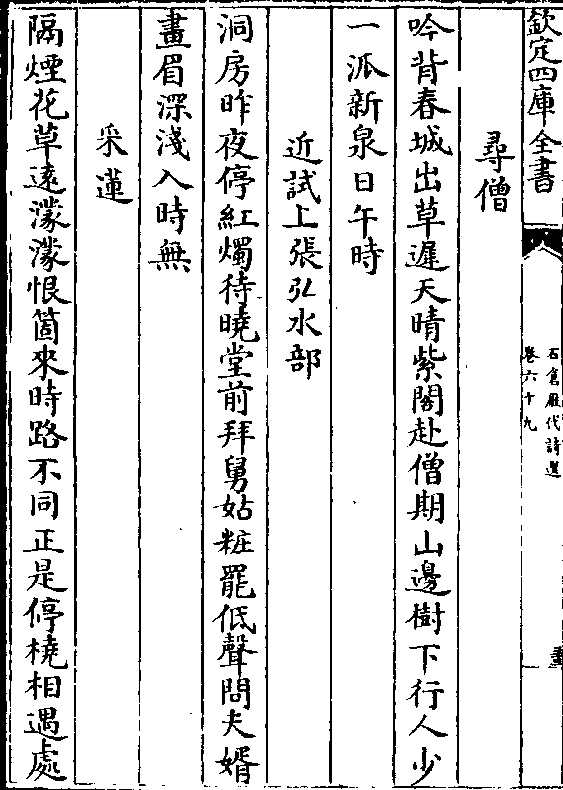 欽定四庫全書
石倉歷代詩選
卷六十九
尋僧
吟背春城出草遲天晴紫閣赴僧期山邊樹下行人少
一派新泉日午時
近試上張弘水部
洞房昨夜停紅燭待曉堂前拜舅姑粧罷低聲問夫婿
畫眉深淺入時無
采蓮
隔煙花草遠濛濛恨箇來時路不同正是停橈相遇處